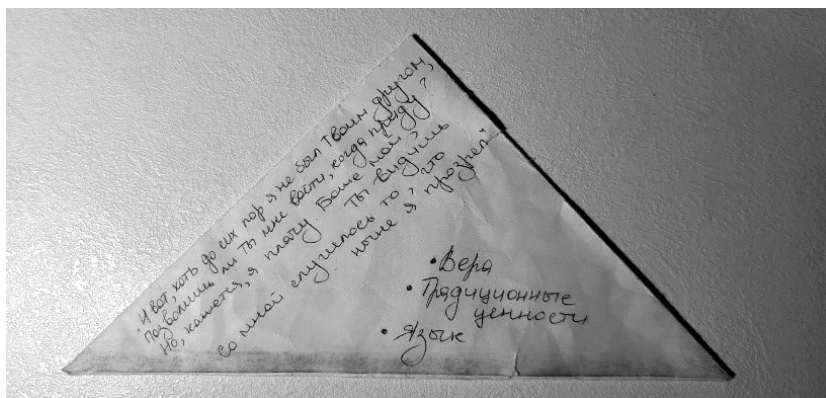 "И вот, хоть до сих пор я не был Твоим другом,
позволишь ли Ты мне войти, когда приду?
Но, кажется, я плачу. Боже мой! Ты видишь
со мной случилось то, что
ныне я прозрел"
• Вера
• Традиционные
ценности
• Язык